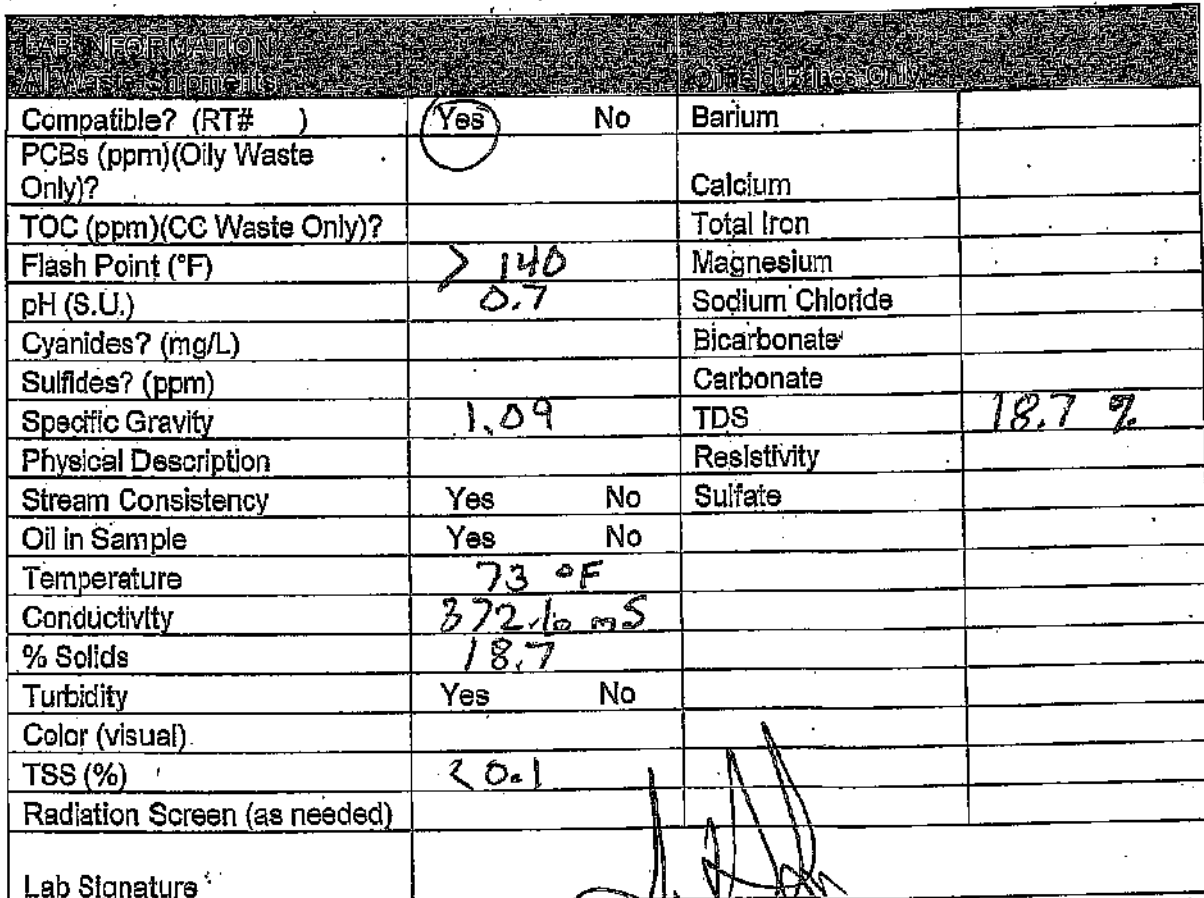 LAB INFORMATION
All Waste Shipments
Oilfield Brines Only
Compatible? (RT# ) Yes No Barium
PCBs (ppm)(Oily Waste
Only)? Calcium
TOC (ppm)(CC Waste Only)? Total Iron
Flash Point (°F) > 140 Magnesium
pH (S.U.) 0.7 Sodium Chloride
Cyanides? (mg/L) Bicarbonate
Sulfides? (ppm) Carbonate
Specific Gravity 1.09 TDS 18.7 %
Physical Description Resistivity
Stream Consistency Yes No Sulfate
Oil in Sample Yes No
Temperature 73 °F
Conductivity 372.6 mS
% Solids 18.7
Turbidity Yes No
Color (visual)
TSS (%) < 0.1
Radiation Screen (as needed)
Lab Signature